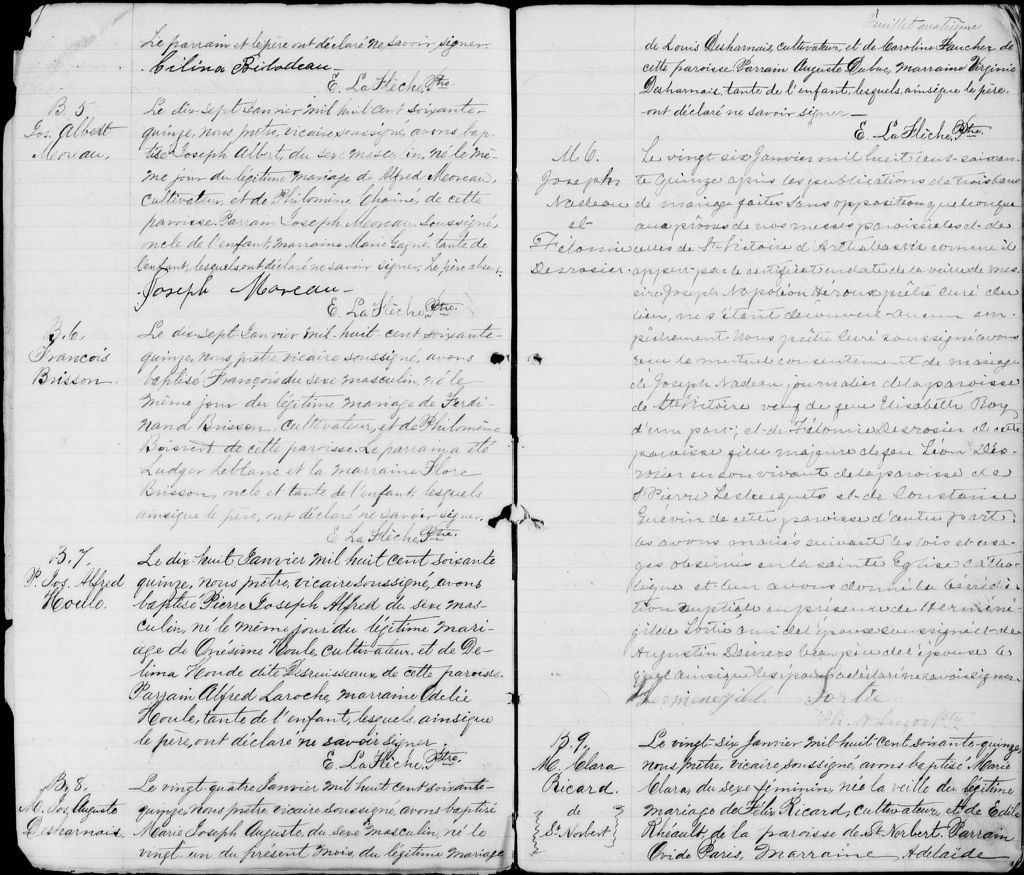 Le parrain et le père ont déclaré ne savoir signer.
Cilina Bilodeau
E. LaFlèche, Ptre.
B. 5.
Jos. Albert
Moreau.
Le dix-sept Janvier mil huit cent soixante-
quinze, nous prêtre, vicaire soussigné, avons bap-
tisé Joseph Albert, du sexe masculin, né le mê-
me jour du légitime mariage de Alfred Moreau,
cultivateur, et de Philomène Chainé, de cette
paroisse. Parrain Joseph Moreau soussigné,
oncle de l'enfant, marraine Marie Gagné, tante de
l'enfant, lesquels ont déclaré ne savoir signer. Le père absent.
Joseph Moreau
E. LaFlèche, Ptre.
B. 6.
François
Brisson.
Le dix-sept Janvier mil huit cent soixante-
quinze, nous prêtre, vicaire soussigné, avons
baptisé François du sexe masculin, né le
même jour du légitime mariage de Ferdi-
nand Brisson, cultivateur, et de Philomène
Boisvert de cette paroisse. Le parrain a été
Ludger Leblanc et la marraine Flore
Brisson, oncle et tante de l'enfant lesquels
ainsi que le père, ont déclaré ne savoir signer.
E. LaFlèche, Ptre.
B. 7.
P. Jos. Alfred
Houle.
Le dix-huit Janvier mil huit cent soixante
quinze, nous prêtre, vicaire soussigné, avons
baptisé Pierre Joseph Alfred du sexe mas-
culin, né le même jour du légitime mari-
age de Onésime Houle, cultivateur, et de De-
lima Houde dite Desruisseaux de cette paroisse.
Parrain Alfred Laroche, marraine Adelie
Houle, tante de l'enfant, lesquels, ainsi que
le père, ont déclaré ne savoir signer.
E. LaFlèche, Ptre.
B. 8.
M. Jos. Auguste
Desharnais.
Le vingt-quatre Janvier mil huit cent soixante-
quinze, nous prêtre, vicaire soussigné, avons baptisé
Marie Joseph Auguste, du sexe masculin, né le
vingt-un du présent mois, du légitime mariage
Feuillet quatrième
de Louis Desharnais, cultivateur, et de Caroline Faucher de
cette paroisse. Parrain Auguste Dubuc, marraine Virginie
Desharnais, tante de l'enfant, lesquels, ainsi que le père
ont déclaré ne savoir signer
E. LaFlèche, Ptre.
M. 6.
Joseph
Nadeau
et
Félonise
Desrosier.
Le vingt six Janvier mil huit cent soixan-
te quinze après les publications de trois bans
de mariage faites sans opposition quelconque
aux prônes de nos messes paroissiales et de
celles de Ste Victoire d'Arthabaska comme il
appert par le certificat en date de la veille de mes-
sire Joseph Napoléon Héroux prêtre curé du
lieu, ne s'étant découvert aucun em-
pêchement Nous prêtre curé soussigné avons
reçu le mutuel consentement de mariage
de Joseph Nadeau journalier de la paroisse
de Ste Victoire veuf de feue Elisabeth Roy
d'une part; et de Félonise Desrosier de cette
paroisse fille majeure de feu Léon Des-
rosier en son vivant de la paroisse de
St Pierre Lesbecquets et de Constance
Guévin de cette paroisse d'autre part
les avons mariés suivant les lois et usa-
ges observés en la sainte Eglise catho-
lique et leur avons donné la bénédic-
tion nuptiale en présence de Herméné-
gilde Sortie ami de l'époux soussigné et de
Augustin Demers beau père de l'épouse le-
quel ainsi que les époux a déclaré ne savoir signer
Hermenegilde Sortie
B. 9.
M. Clara
Ricard.
de
St. Norbert
Le vingt-six Janvier mil huit cent soixante-quinze
nous prêtre, vicaire soussigné, avons baptisé Marie
Clara, du sexe féminin, née la veille du légitime
mariage de Félix Ricard, cultivateur, et de Edile
Rheault, de la paroisse de St-Norbert. Parrain
Ovide Paris, Marraine Adelaïde